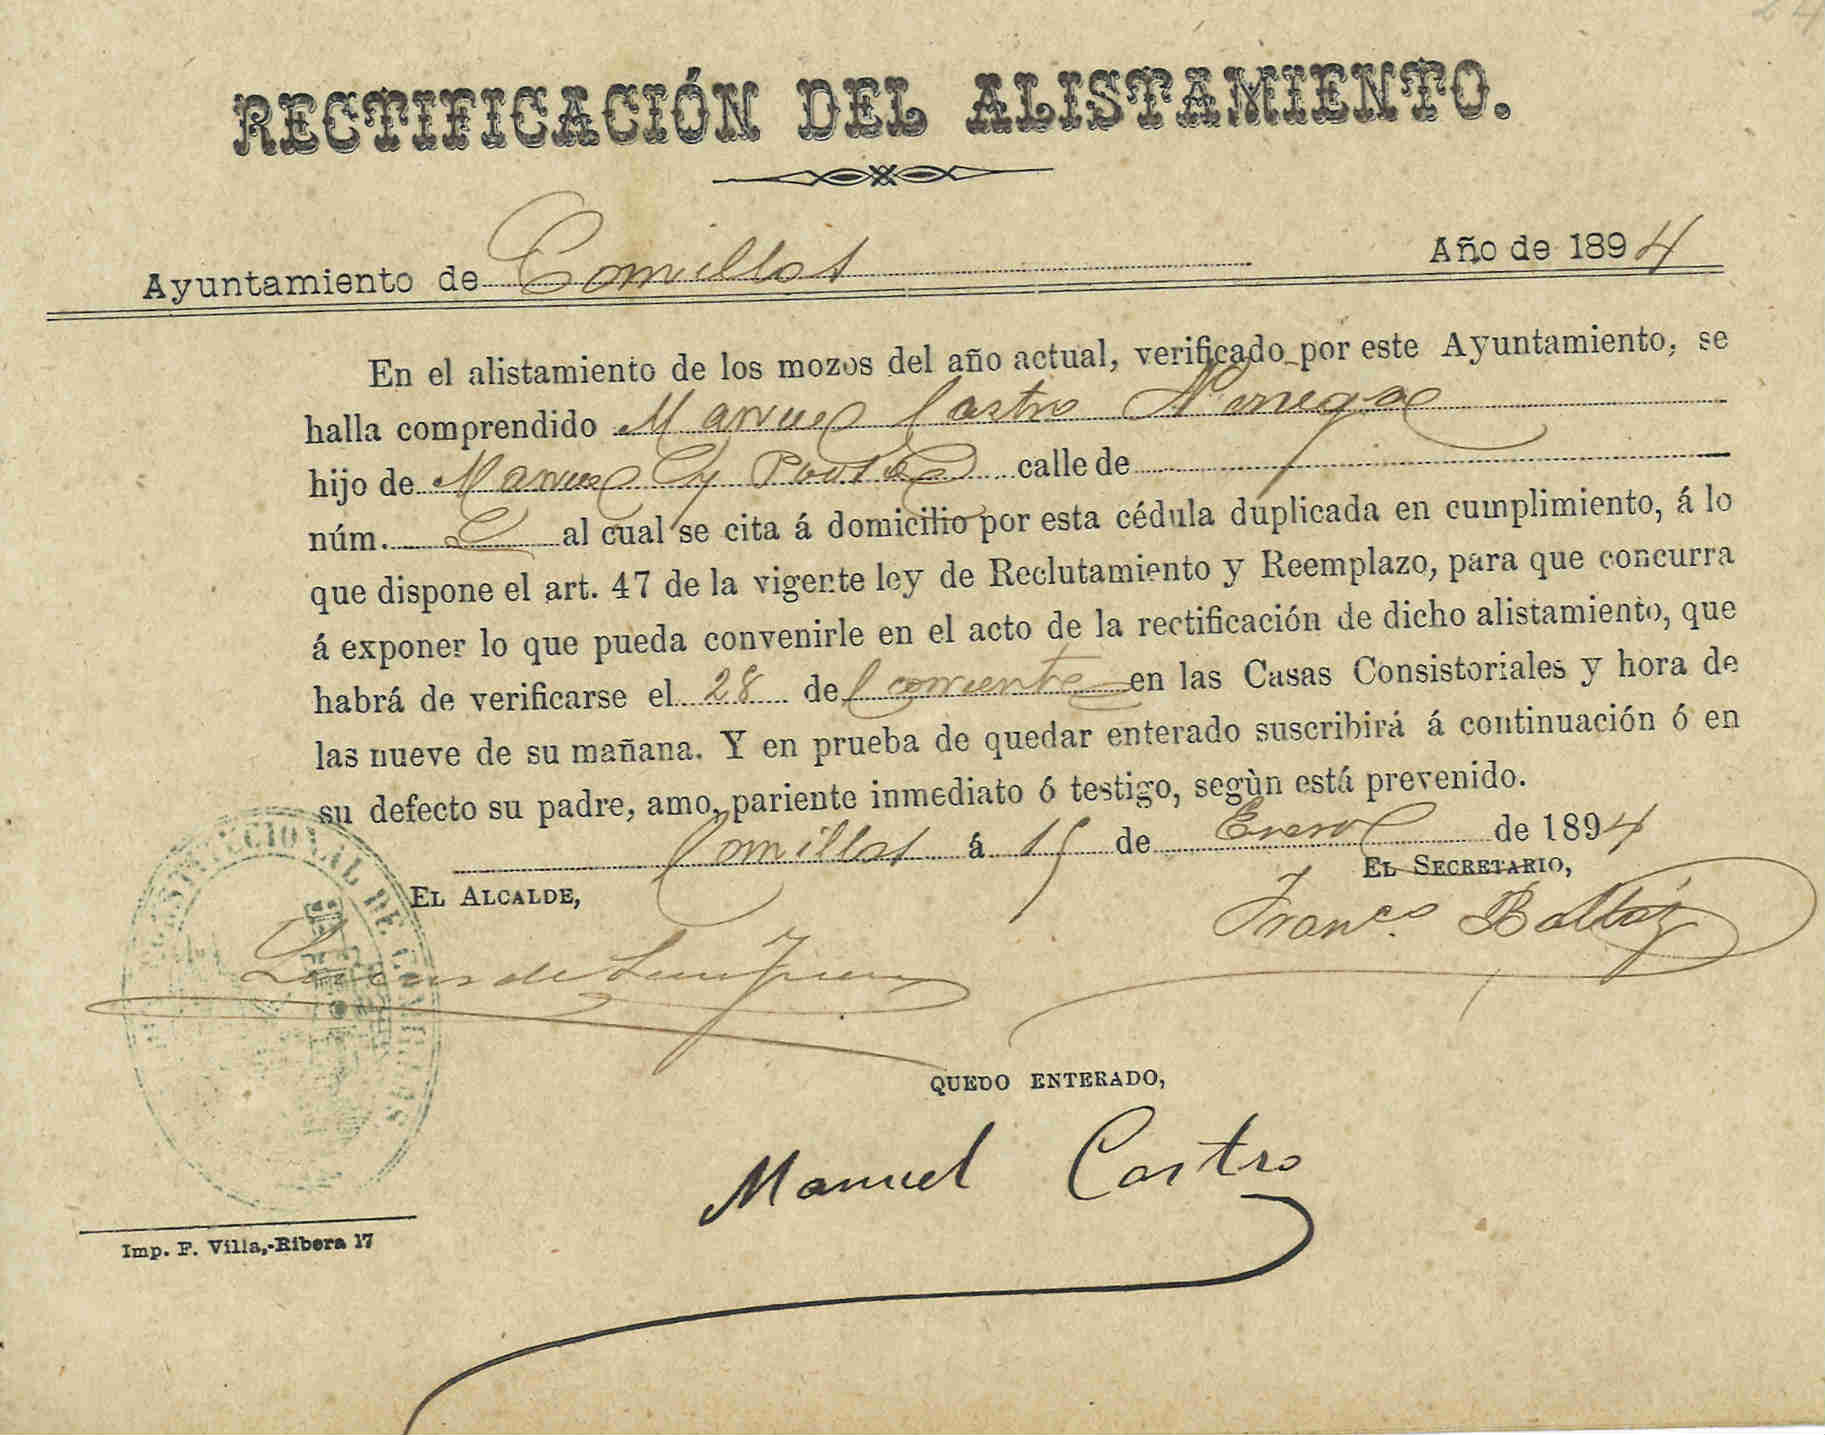 RECTIFICACIÓN DEL ALISTAMIENTO.
Ayuntamiento de Comillas Año de 1894
En el alistamiento de los mozos del año actual, verificado por este Ayuntamiento, se
halla comprendido Manuel Castro Noriega
hijo de Manuel y calle de
núm. al cual se cita á domicilio por esta cédula duplicada en cumplimiento, á lo
que dispone el art. 47 de la vigente ley de Reclutamiento y Reemplazo, para que concurra
á exponer lo que pueda convenirle en el acto de la rectificación de dicho alistamiento, que
habrá de verificarse el 28 de Corriente en las Casas Consistoriales y hora de
las nueve de su mañana. Y en prueba de quedar enterado suscribirá á continuación ó en
su defecto su padre, amo, pariente inmediato ó testigo, segùn está prevenido.
Comillas á 15 de Enero de 1894
EL ALCALDE, EL SECRETARIO,
Franco.
QUEDO ENTERADO,
Manuel Castro
Imp. F. Villa,-Ribera 17